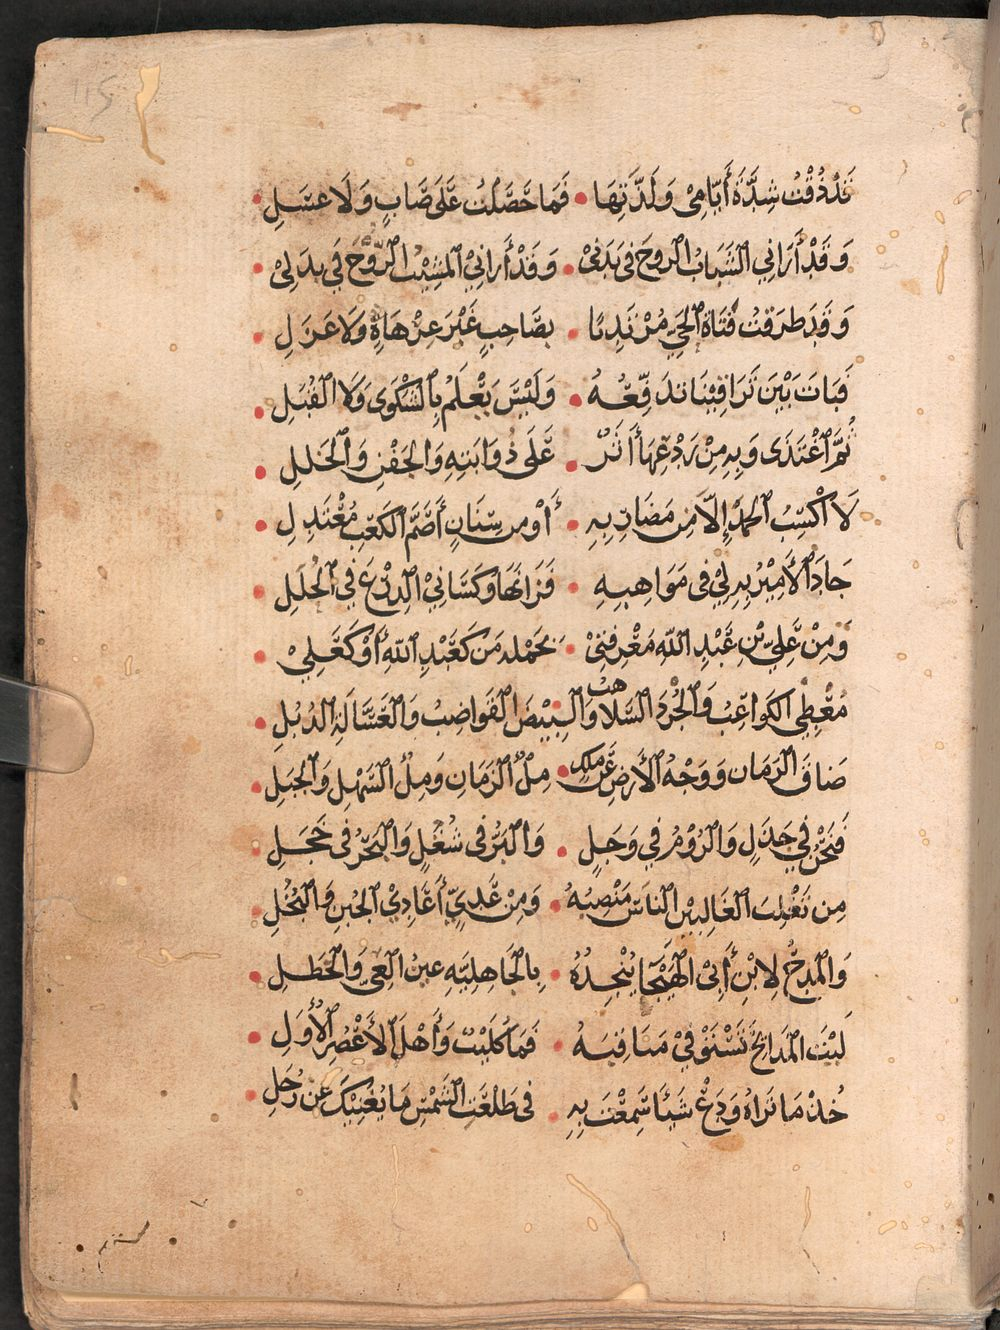 قَدْ ذُقْتُ شِدَّةَ أَيَّامِي وَلَذَّتِهَا • فَمَا حَصَلْتُ عَلَى صَابٍ وَلَا عَسَلِ •
وَقَدْ أَرَانِي الشَّبَابُ الرُّوحَ فِي بَدَنِي • وَقَدْ أَرَانِي الْمَشِيْبُ الرُّوْحَ فِي بَدَلِيْ •
وَقَد طَرَقْتُ فَتَاةَ الْحَيِّ مُرْتَدِيًا • بِصَاحِبٍ غَيْرِ عِزْهَاةٍ وَلَا غَزَلِ •
فَبَاتَ بَيْنَ تَرَاقِيْنَا نُدَفِّعُهُ • وَلَيْسَ يَعْلَمُ بِالشَّكْوَى وَلَا الْقُبَلِ •
ثُمَّ اغْتَذَى وَبِهِ مِنْ رَدْعِهَا أَثَرٌ • عَلَى ذُوَابَتِهِ وَالْجَفْنِ وَالْخِلَلِ •
لَا أَكْسِبُ الْحَمْدَ إِلَّا مِن مَضَارِبِهِ • أَوْ مِن سِنَانٍ أَصَمِّ الْكَعْبِ مُعْتَدِلِ •
جَادَ الْأَمِيْرُ بِهِ لِيْ فِي مَوَاهِبِهِ • فَزَانَهَا وَكَسَانِيْ الدِّرْعَ فِي الْحُلَلِ •
وَمِنْ عَلِيِّ بْنِ عَبْدِ اللَّهِ مَعْرِفَتِيْ • بِحَمْلِهِ مَن كَعَبْدِ اللَّهِ أَوْ كَعَلِيْ •
مُعْطِي الْكَوَاعِبِ وَالْجُرْدِ السَّلَاهِبِ وَالْبِيْضِ الْقَوَاضِبِ وَالْعَسَّالَةِ الذُّبُلِ •
ضَاقَ الزَّمَان وَوَجْهُ الْأَرْضِ عَنْ مَلِكٍ • مِلْءُ الزَّمَانِ وَمِلْءُ السَّهْلِ وَالْجَبَلِ •
فَنَحْنُ فِي جَذَلٍ وَالرُّوْمُ فِي وَجَلٍ • وَالْبَرُّ فِي شُغُلٍ وَالْبَحْرُ فِي خَجَلِ •
مِن تَغْلِبَ الْغَالِبِيْنَ النَّاسَ مَنْصِبُهُ • وَمِنْ عَدِيٍّ أَعَادِيْ الْجُبْنِ وَالْبُخْلِ •
وَالْمَدْحُ لِابْنِ أَبِيْ الْهَيْجَا يُنْجِدُهُ • بِالْجَاهِلِيَّةِ عَيْنُ الْعِيِّ وَالْخَطَلِ •
لَيْتَ الْمَدَائِحَ تَسْتَوْفِيْ مَنَاقِبَهُ • فَمَا كُلَيْبٌ وَأَهْلُ الْأَعْصُرِ الْأُوَلِ •
خُذْ مَا تَرَاهُ وَدَعْ شَيْئًا سَمِعْتَ بِهِ • فِي طَلْعَةِ الشَّمْسِ مَا يُغْنِيْكَ عَنْ زُحَلِ •